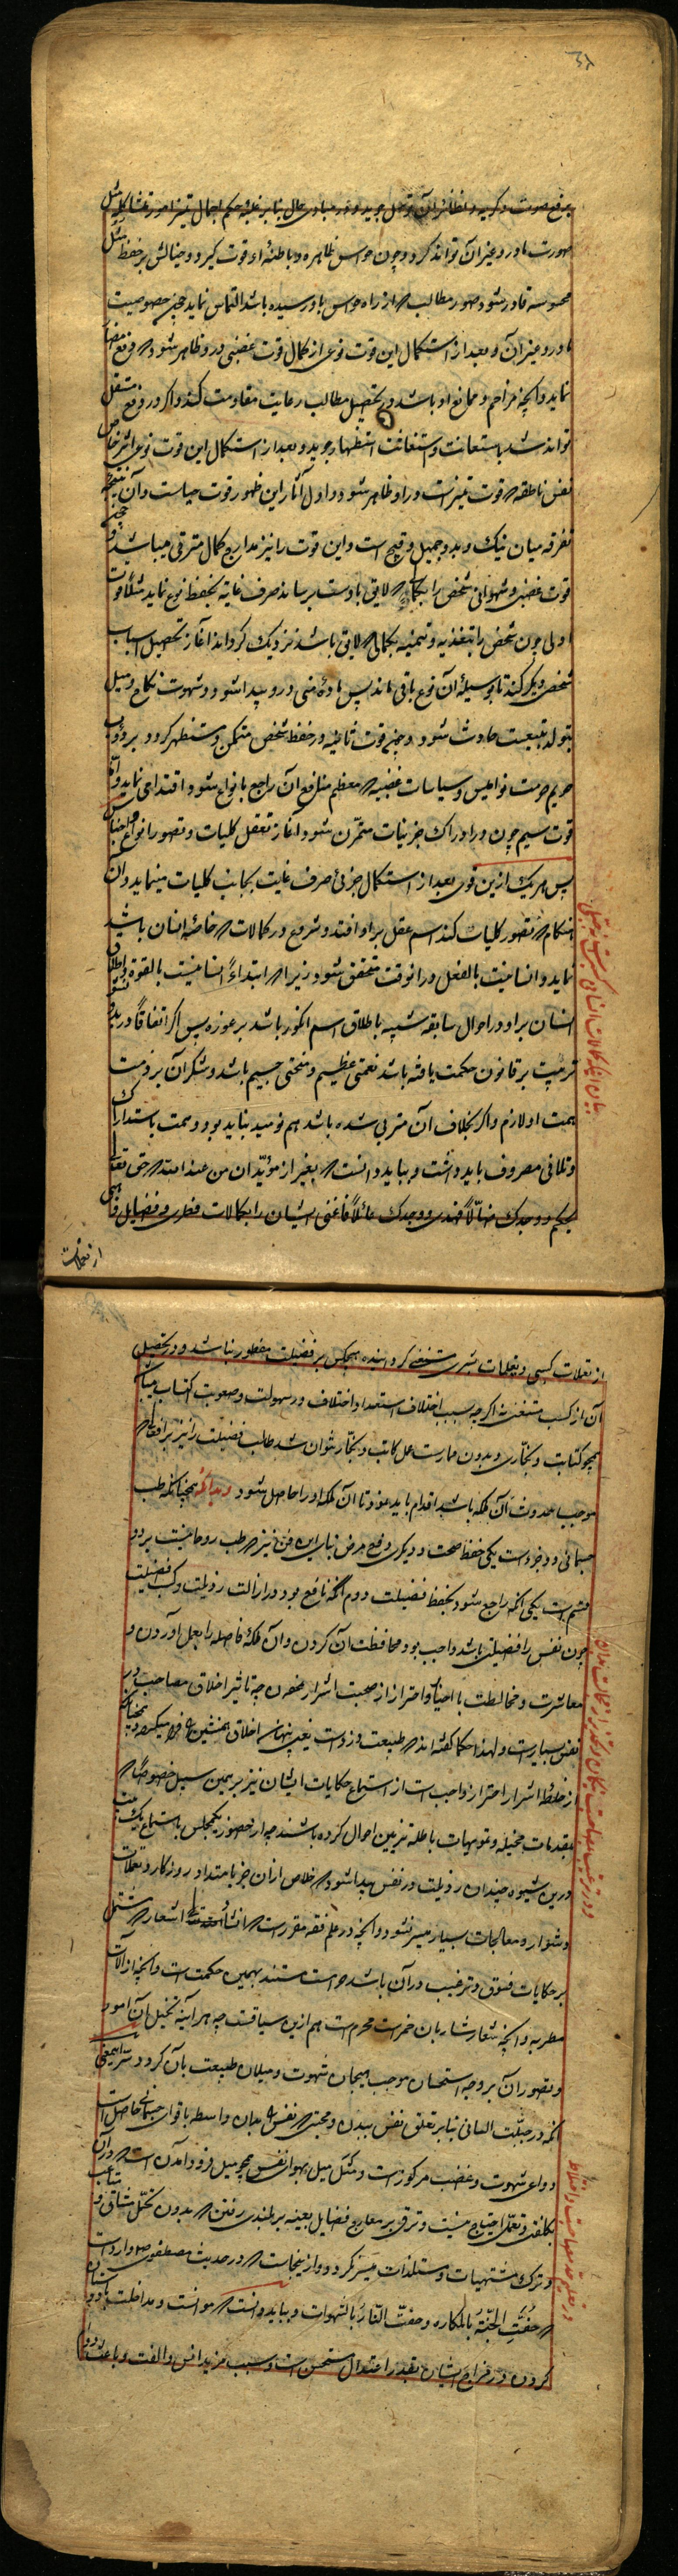 صورت مادر و غیر آن تواند کرد و چون حواس ظاهره و باطنهٔ او قوت گیرد و خیالش بر حفظ مثل
محسوسه قادر شود صور مطالب که از راه حواس باو رسیده باشد التماس نماید چون خصوصیت
مادر و غیر آن و بعد از استکمال این قوت نوعی از کمال قوت غضبی در و ظاهر شود که دفع مضار
نماید و آنچه مزاحم و ممانع او باشد در تحصیل مطالب رعایت مقاومت کند و اگر در دفع مستقل
تواند شد باستعانت و استغاثت استظهار جوید و بعد از استکمال این قوت نوعی اثر خاص
نفس ناطقه که قوت تمیز است در او ظاهر شود و اول آثار این ظهور قوت حیاست و آن نتیجه
تفرقه میان نیک و بد و جمیل و قبیح است و این قوت را نیز مدارج کمال مترقی میباشد و چون
قوت غضبی و شهوانی شخص را بکمالی که لایق باوست برساند صرف غایة بحفظ نوع نماید مثلا قوت
اولی چون شخص را بتغذیه و تنمیه بکمالی که لایق باشد نزدیک گرداند آغاز تحصیل اسباب
شخص دیگر کند تا بوسیلهٔ آن نوع باقی ماند پس مادهٔ منی در و پیدا شود و شهوت نکاح و میل
بتولد بتبعیت حادث شود و چون قوت ثانیه در حفظ شخص متمکن و مستظهر گردد بر ذب
حریم حرمت نوامیس و سیاسات غضبیه که معظم منافع آن راجع بانواع شود اقتدامی نماید و اما
قوت سیم چون در ادراک جزئیات متمرّن شود آغاز تعقل کلیات و تصور انواع و اجناس
پس هر یک ازین قوی بعد از استکمال جزئی صرف غایت بجانب کلیات مینماید و آن
هنگام که تصور کلیات کند اسم عقل بر او افتد و شروع در کمالات که خاصهٔ انسان باشد
نماید و انسانیت بالفعل در آنوقت متحقق شود زیرا که ابتداءً انسانیت بالقوة و اطلاق
انسان بر او در احوال سابقه شبیه باطلاق اسم انگور باشد بر غوره پس اگر اتفاقاً در بدو نشو
تربیت بر قانون حکمت یافته باشد نعمتی عظیم و منحتی جسیم باشد و شکر آن بر ذمت
همت او لازم و اگر بخلاف آن متربی شده باشد هم نومید نباید بود و همت باستدراک
و تلافی مصروف باید داشت و بباید دانست که بغیر از مؤیّدان من عند الله که حق تعالی
بحکم و وجدک ضالّاً فهدی و وجدک عائلاً فاغنی ایشان را بکمالات فطری و فضایل وهبی
بیان آنکه کمالات انسان
از تعلات کسبی و تعلمات بشری مستغنی گردانیده هیچکس بر فضیلت مفطور نباشد و در تحصیل
آن از کسب مستغنی نه اگرچه بسبب اختلاف استعداد اختلاف در سهولت و صعوبت اکتساب میباشد
همچو کتابت و نجّاری و بدون ممارست عمل کاتب و نجّار نتوان شد طالب فضیلت را نیز بر افعالی که
موجب حدوث آن ملکه باشد اقدام باید نمود تا آن ملکه او را حاصل شود و بدانکه همچنانکه طب
جسمانی دو جزوست یکی حفظ صحت و دیگری دفع مرض بنابر این فن نیز که طب روحانیست بر دو
قسم است یکی آنکه راجع شود بحفظ فضیلت دوم آنکه نافع بود در ازالت رذیلت و کسب فضیلت
چون نفس را فضیلتی باشد واجب بود محافظت آن کردن و آن ملکهٔ فاضله را بعمل آوردن و
معاشرت و مخالطت با اخیار و احتراز از صحبت اشرار نمودن چه تاثیر اخلاق مصاحب در
نفس بسیارست و لهذا حکما گفته‌اند که طبیعت دزدست یعنی پنهان اخلاق همنشین را فرا میگیرد و همچنانکه
از خلطهٔ اشرار احتراز واجب است از استماع حکایات ایشان نیز بر همین سبیل خصوصاً که
بمقدمات مخیله و تمویهات باطله تزیین احوال کرده باشند چه از حضور یکمجلس باستماع یک بیت
درین شیوه چندان رذیلت در نفس پیدا شود که خلاص از آن جز بامتداد روزگار و تعملات
دشوار و معالجات بسیار میسر نشود و آنچه در علم فقه مقررست که انشا اشعار که مشتمل
بر حکایات فسوق و ترغیب در آن باشد حرامست مستند بهمین حکمت است و آنچه از آلات
مطربه و آنچه شعار شاربان خمرست محرم است هم ازین سیاقت چه هر آینه تخیل آن امور
و تصور آن بر وجه استحسان موجب هیجان شهوت و میلان طبیعت بآن گردد
آنکه در جبلّت انسانی بنابر تعلق نفس ببدن و محبتی که نفس را بدان واسطه با قوای جسمانی حاصل است
دواعی شهوت و غضب مرکوزست و مثل میل بهوای نفس همچو میل فرود آمدن است که در آن
بکلفتی و تعمّلی احتیاج نیست و ترقی بر معارج فضایل بعینه بر بلندی رفتن که بدون تحمّل مشاق و متاعب
و ترک مشتهیات و مستلذات میسر نگردد و از ینجاست که در حدیث مصطفوی وارد است
که حفّت الجنّة بالمکاره و حفّت النّار بالشهوات و بباید دانست که موانست و مداخلت با دوستان
کردن در مزاح ایشان بقدر اعتدال مستحسن است و سبب مزید انس و الفت و باعث